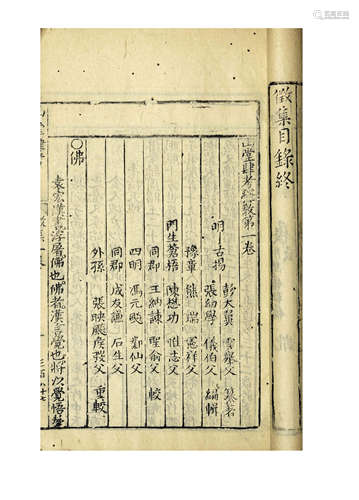 徵集目錄終
山堂肆考徵集第一卷
明 古揚
彭大翼 雲舉父 纂著
張幼學 儀伯父 編輯
豫章 熊 瑞 憲祥父
門生蒼梧 陳懋功 惟志父
同郡 王納諫 聖俞父 較
四明 馮元飏
同郡 成友謙 石生父
外孫 張映 父 重較
○佛
袁宏漢書浮屠佛也佛者漢言覺也將以覺悟羣